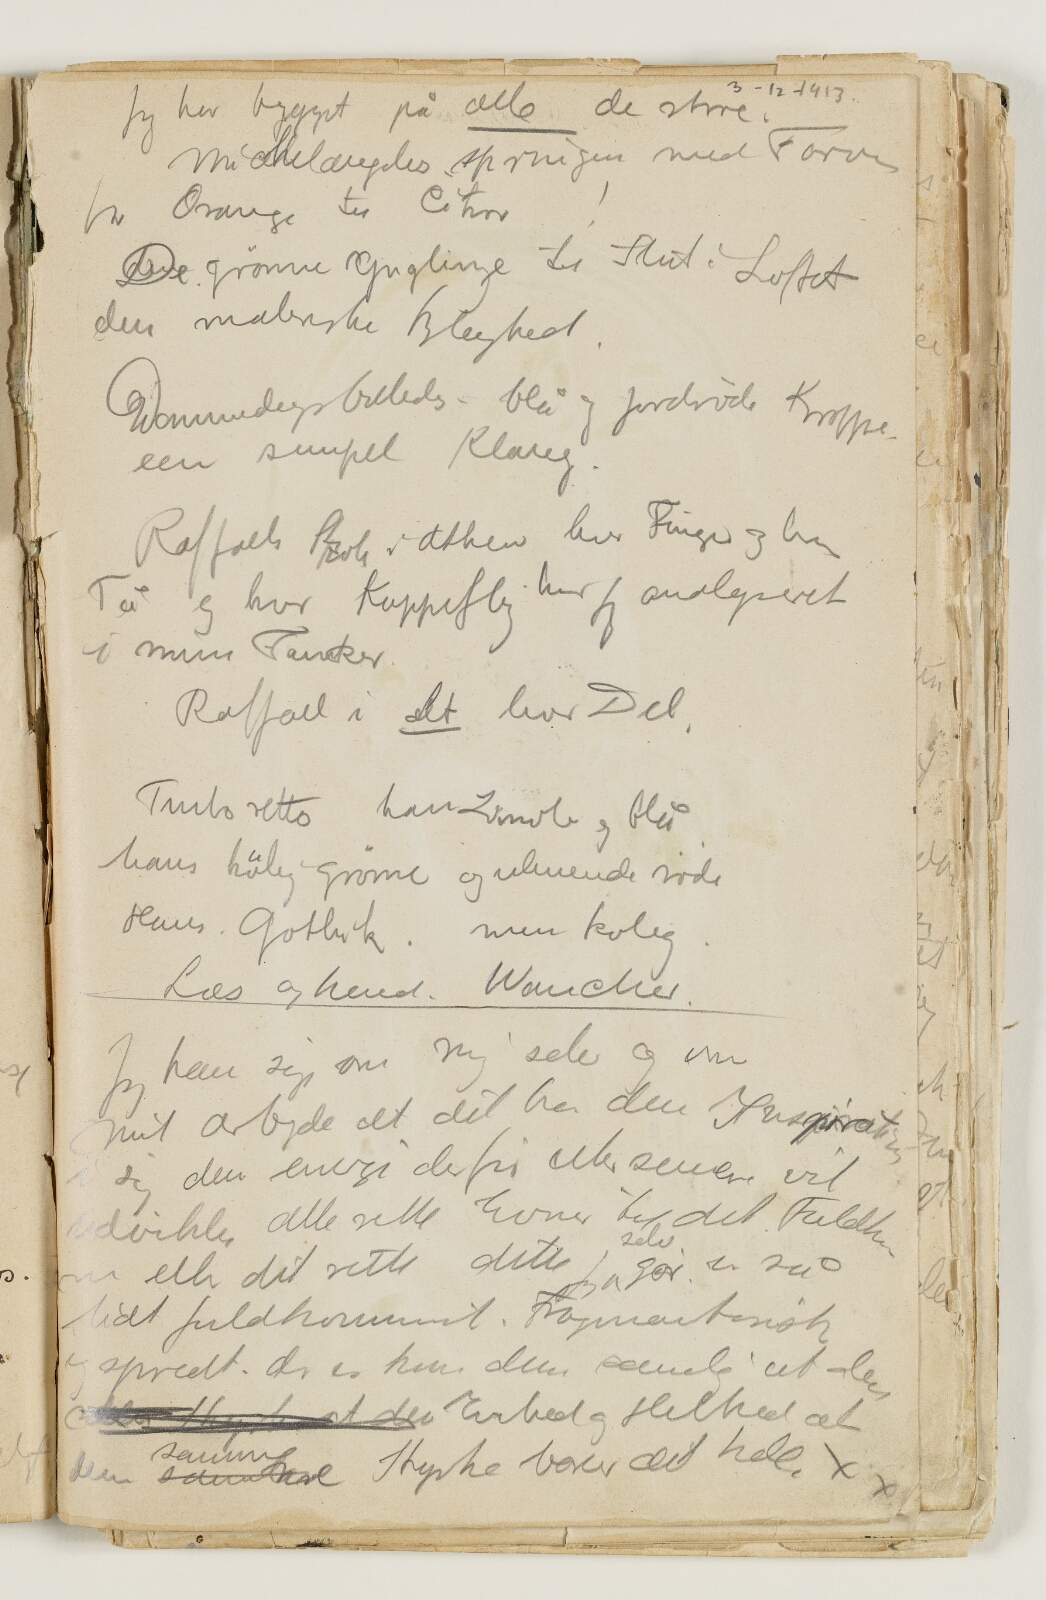 3-12-1913.
Jeg har bygget på alle de store.
Michelangelos springen med Farven
fra Orange til Citron !
De grönne Ynglinge til Slut i Loftet
den maleriske Bleghed.
Dommedagsbilledet - blå og jordröde Kroppe -
een simpel Klang.
Raffaels Skole i Athen hver Finger og hver
Tå og hver Kappeflig har jeg analyseret
i mine Tanker.
Raffael i alt hver Del.
Tintoretto hans og blå
hans kölig grönne og ulmende röde
Hans. Gothik. men kolig.
Læs og hend. Wancher.
Jeg kan sige om mig selv og om
mit arbejde at det har den Inspiration
i sig den energi der för eller senere vil
udvikle alle rette Evner til det Fuldkom
ne eller det rette dette jeg selv gör er så
lidt fuldkomment. Fragmentarisk
og spredt. der er kun den at den
Enhed og Helhed at
den samme Styrke bærer det hele. X x